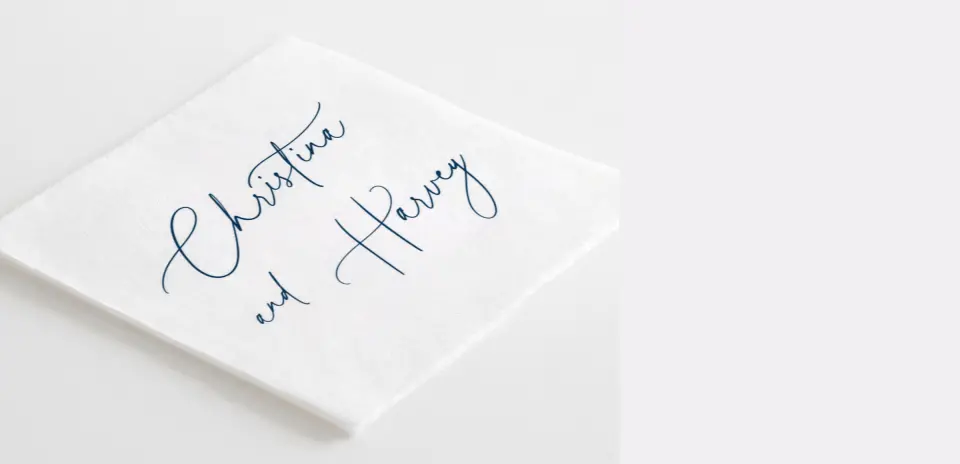 Christina
and Harvey